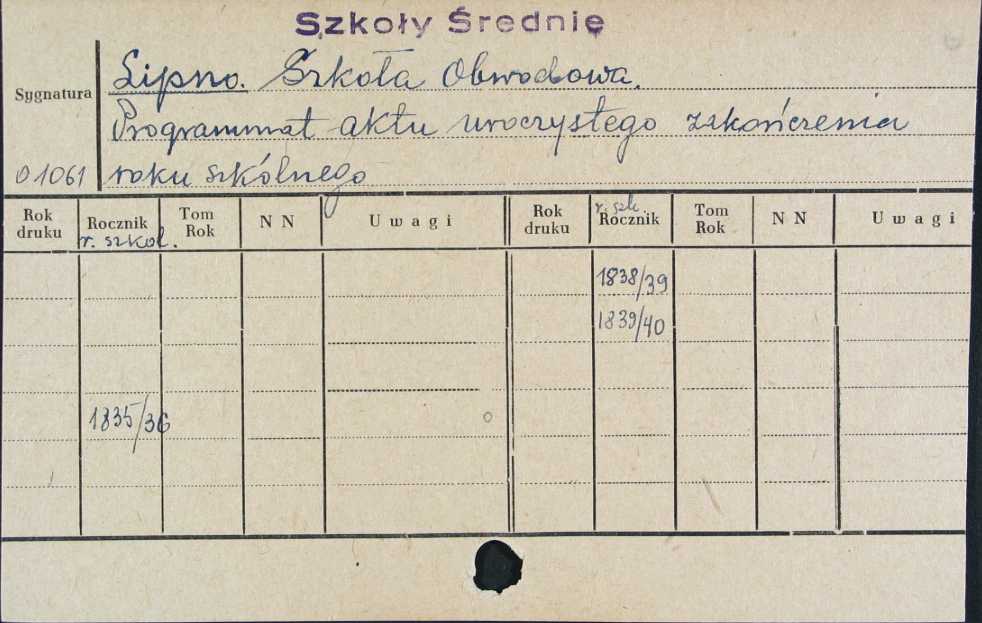 Szkoły Średnię
Sygnatura
Lipno. Szkoła Obwodowa.
Programmat aktu uroczystego zakończenia
01061 roku szkólnego
Rok druku Rocznik r. szkol. Tom Rok N N Uwagi Rok druku r. szk Rocznik Tom Rok N N Uwagi
1838/39
1839/40
1835/36